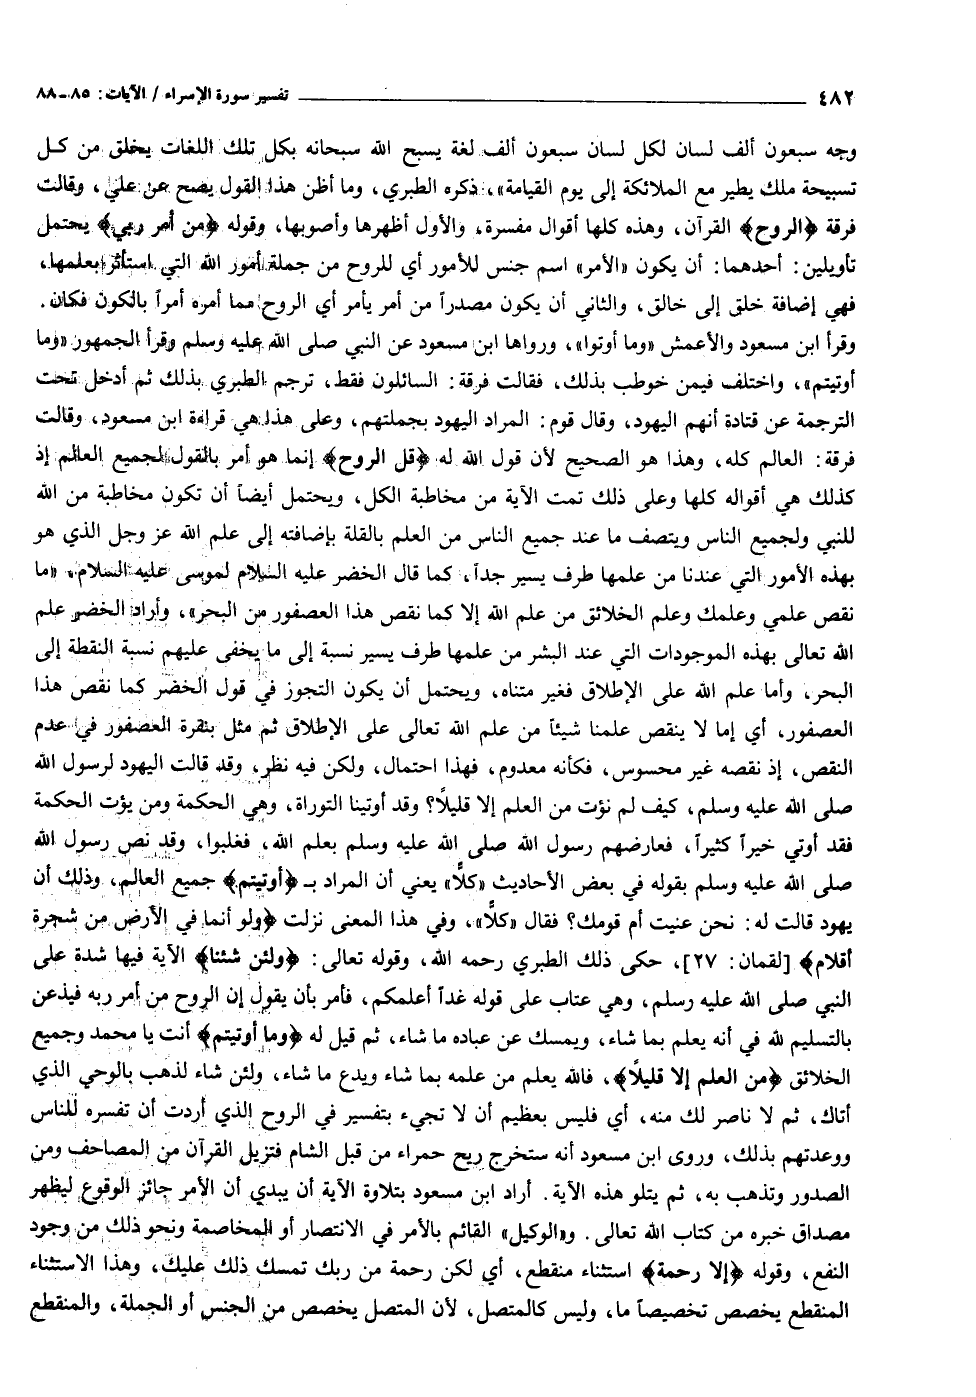 ٤٨٢ ــــــــــــــــــــــــــــــــــــــــ تفسير سورة الإسراء / الآيات: ٨٥ـ٨٨
وجه سبعون ألف لسان لكل لسان سبعون ألف لغة يسبح الله سبحانه بكل تلك اللغات يخلق من كل
تسبيحة ملك يطير مع الملائكة إلى يوم القيامة»، ذكره الطبري، وما أظن هذا القول يصح عن علي، وقالت
فرقة ﴿الروح﴾ القرآن، وهذه كلها أقوال مفسرة، والأول أظهرها وأصوبها، وقوله ﴿من أمر ربي﴾ يحتمل
تأويلين: أحدهما: أن يكون «الأمر» اسم جنس للأمور أي للروح من جملة أمور الله التي استأثر بعلمها،
فهي إضافة خلق إلى خالق، والثاني أن يكون مصدراً من أمر يأمر أي الروح مما أمره أمراً بالكون فكان.
وقرأ ابن مسعود والأعمش «وما أوتوا»، ورواها ابن مسعود عن النبي صلى الله عليه وسلم وقرأ الجمهور «وما
أوتيتم»، واختلف فيمن خوطب بذلك، فقالت فرقة: السائلون فقط، ترجم الطبري بذلك ثم أدخل تحت
الترجمة عن قتادة أنهم اليهود، وقال قوم: المراد اليهود بجملتهم، وعلى هذا هي قراءة ابن مسعود، وقالت
فرقة: العالم كله، وهذا هو الصحيح لأن قول الله له ﴿قل الروح﴾ إنما هو أمر بالقول لجميع العالم إذ
كذلك هي أقواله كلها وعلى ذلك تمت الآية من مخاطبة الكل، ويحتمل أيضاً أن تكون مخاطبة من الله
للنبي ولجميع الناس ويتصف ما عند جميع الناس من العلم بالقلة بإضافته إلى علم الله عز وجل الذي هو
بهذه الأمور التي عندنا من علمها طرف يسير جداً، كما قال الخضر عليه السلام لموسى عليه السلام، «ما
نقص علمي وعلمك وعلم الخلائق من علم الله إلا كما نقص هذا العصفور من البحر»، وأراد الخضر علم
الله تعالى بهذه الموجودات التي عند البشر من علمها طرف يسير نسبة إلى ما يخفى عليهم نسبة النقطة إلى
البحر، وأما علم الله على الإطلاق فغير متناه، ويحتمل أن يكون التجوز في قول الخضر كما نقص هذا
العصفور، أي إما لا ينقص علمنا شيئاً من علم الله تعالى على الإطلاق ثم مثل بنقرة العصفور في عدم
النقص، إذ نقصه غير محسوس، فكأنه معدوم، فهذا احتمال، ولكن فيه نظر، وقد قالت اليهود لرسول الله
صلى الله عليه وسلم، كيف لم نؤت من العلم إلا قليلاً؟ وقد أوتينا التوراة، وهي الحكمة ومن يؤت الحكمة
فقد أوتي خيراً كثيراً، فعارضهم رسول الله صلى الله عليه وسلم بعلم الله، فغلبوا، وقد نص رسول الله
صلى الله عليه وسلم بقوله في بعض الأحاديث «كلاًّ» يعني أن المراد بـ ﴿أوتيتم﴾ جميع العالم، وذلك أن
يهود قالت له: نحن عنيت أم قومك؟ فقال «كلاًّ»، وفي هذا المعنى نزلت ﴿ولو أنما في الأرض من شجرة
أقلام﴾ [لقمان: ٢٧]، حكى ذلك الطبري رحمه الله، وقوله تعالى: ﴿ولئن شئنا﴾ الآية فيها شدة على
النبي صلى الله عليه رسلم، وهي عتاب على قوله غداً أعلمكم، فأمر بأن يقول إن الروح من أمر ربه فيذعن
بالتسليم لله في أنه يعلم بما شاء، ويمسك عن عباده ما شاء، ثم قيل له ﴿وما أوتيتم﴾ أنت يا محمد وجميع
الخلائق ﴿من العلم إلا قليلاً﴾، فالله يعلم من علمه بما شاء ويدع ما شاء، ولئن شاء لذهب بالوحي الذي
أتاك، ثم لا ناصر لك منه، أي فليس بعظيم أن لا تجيء بتفسير في الروح الذي أردت أن تفسره للناس
ووعدتهم بذلك، وروى ابن مسعود أنه ستخرج ريح حمراء من قبل الشام فتزيل القرآن من المصاحف ومن
الصدور وتذهب به، ثم يتلو هذه الآية. أراد ابن مسعود بتلاوة الآية أن يبدي أن الأمر جائز الوقوع ليظهر
مصداق خبره من كتاب الله تعالى. و«الوكيل» القائم بالأمر في الانتصار أو المخاصمة ونحو ذلك من وجود
النفع، وقوله ﴿إلا رحمة﴾ استثناء منقطع، أي لكن رحمة من ربك تمسك ذلك عليك، وهذا الاستثناء
المنقطع يخصص تخصيصاً ما، وليس كالمتصل، لأن المتصل يخصص من الجنس أو الجملة، والمنقطع